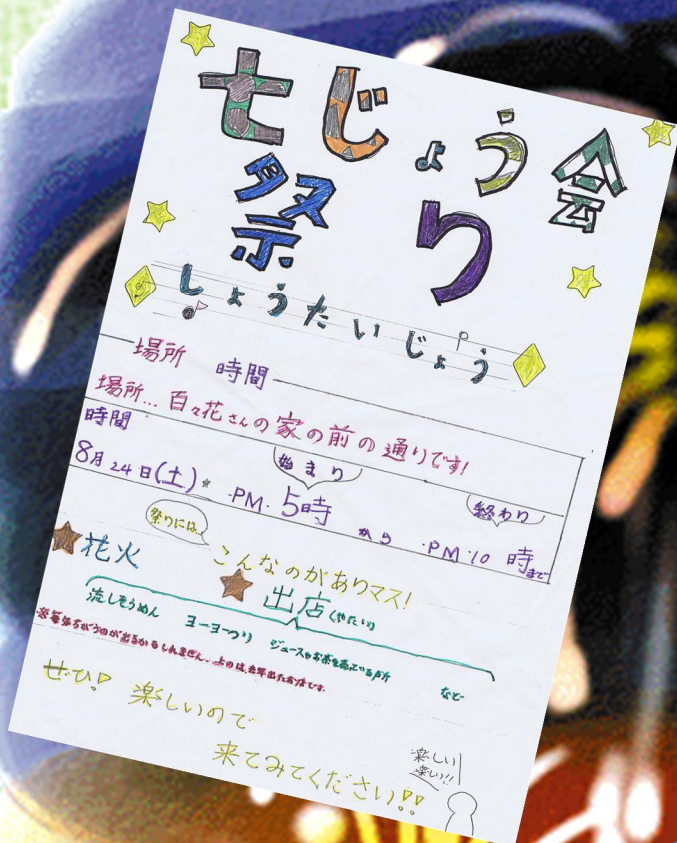 七じょう会
祭り
しょうたいじょう
場所 時間
場所... 百々花さんの家の前の通りです!
時間
始まり 終わり
8月24日(土) ・PM・5時 から ・PM・10時まで
祭りには...
こんなのがありマス!
★花火 ★出店(やたい)
流しそうめん ヨーヨーつり ジュースやお茶を売っている所 など
※毎年ちがうのが出るかもしれません。上のは、去年出たお店です。
ぜひ! 楽しいので
来てみてください!!
楽しい
楽しい!!